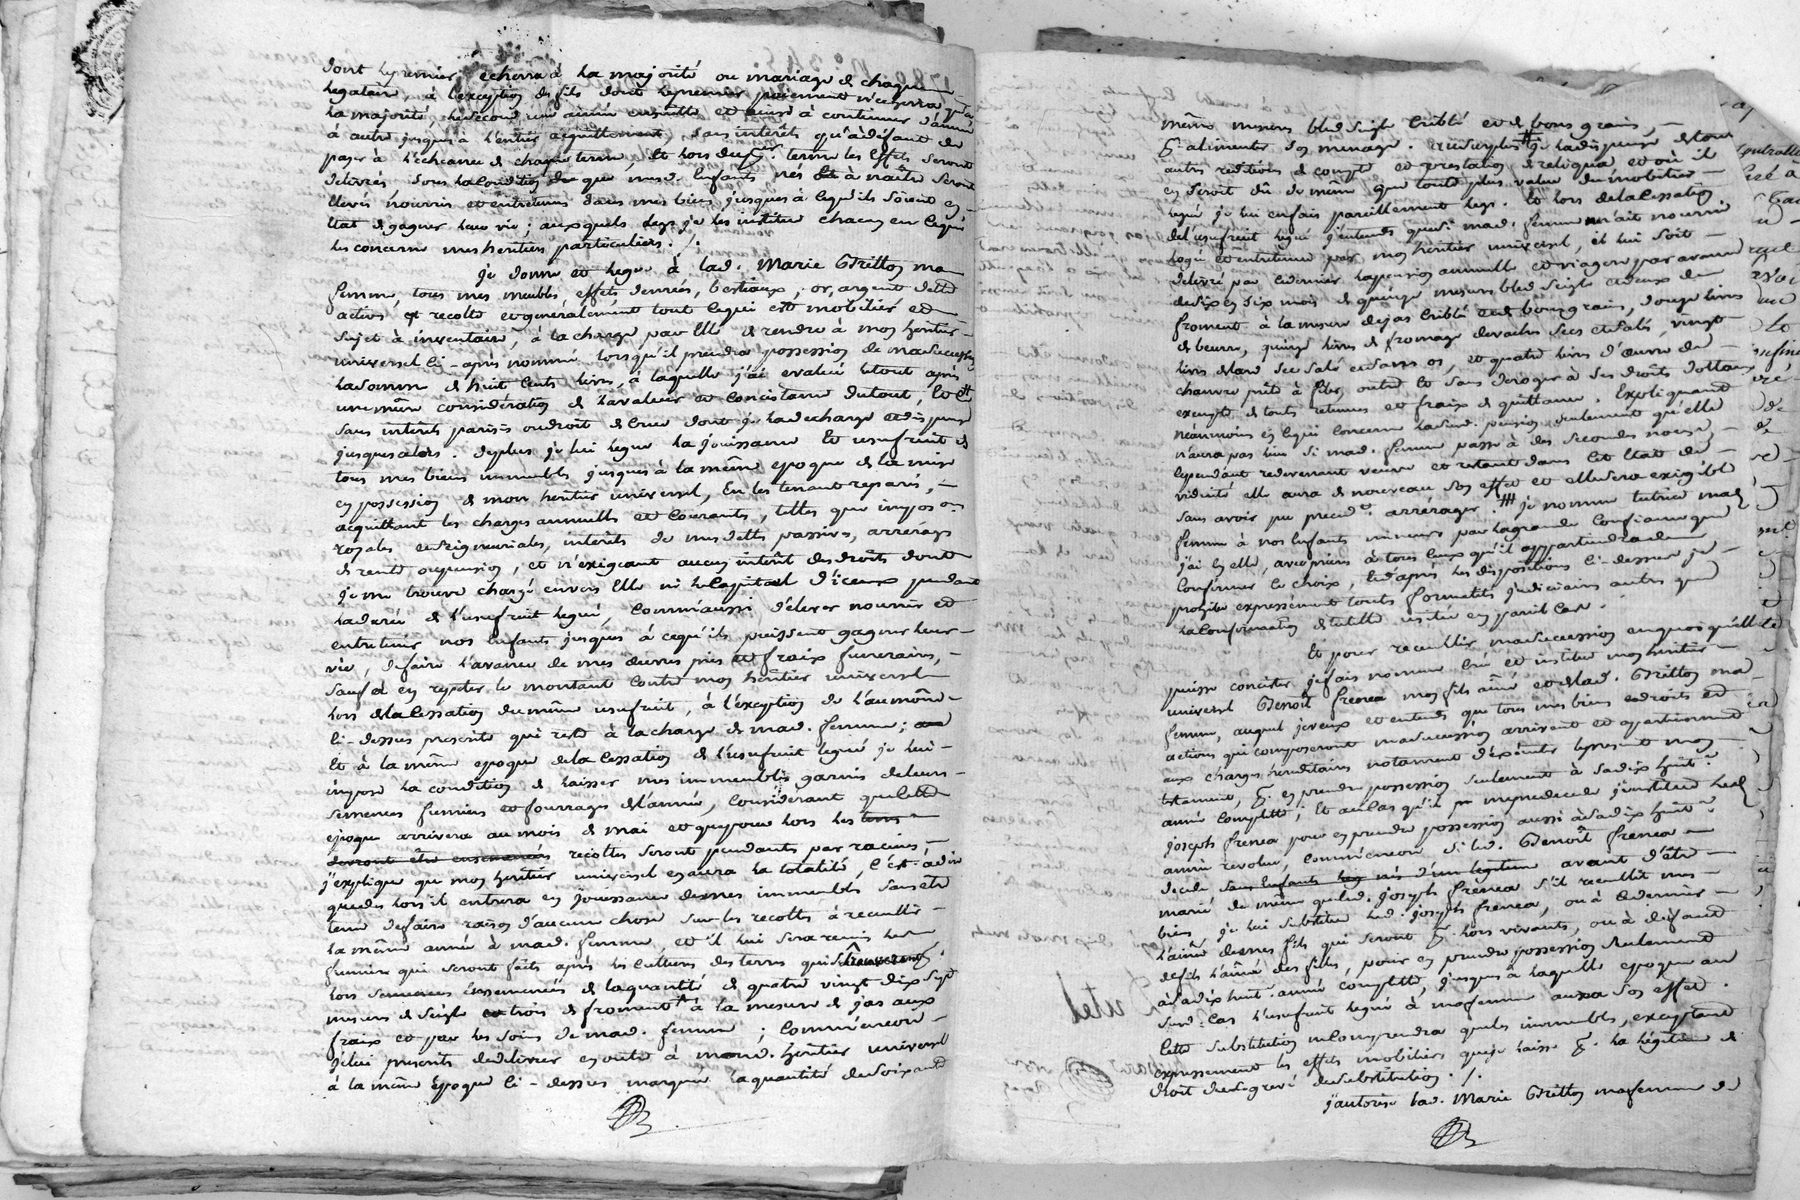 dont le premier echerra à la majorité ou mariage de chaque
legataire, à l'exception des fils dont le premier paiement n'echerra qu'à
la majorité, le second une année ensuitte et ainsi à continuer d'année
à autre jusqu'à l'entier acquittement, sans interêts qu'à défaut de
payer à l'écheance de chaque terme, et lors du terme les effets seront
delivrés, sous la condition que mesd. enfants nés et à naître seront
élevés nourris et entretenus dans mes biens jusques à ce qu'ils soient en
état de gagner leur vie; auxquels legs je les institue chacun en ce qui
les concerne mes heritiers particuliers. /.
je donne et legue à lad. Marie Gritton ma
femme, tous mes meubles, effets denrées, bestiaux, or, argent dette
actives et recolte et généralement tout ce qui est mobilier et
sujet à inventaire, à la charge par elle de rendre à mon heritier
universel ci-après nommé lorsqu'il prendra possession de ma succession
la somme de huit cents livres, à laquelle j'ai evalué le tout après
une mûre considération de la valeur et concistance du tout, et
sans intérêts parisis ou droit de crue dont je la decharge et dispense
jusques alors. deplus je lui legue la jouissance et usufruit de
tous mes biens immeubles jusques à la même epoque de la mise
en possession de mon heritier universel, en les tenant reparés,
acquittant les charges annuelles et courantes, telles que impos°ns
royales et seigneuriales, interêts de mes dettes passives, arrérages
de rente ou pension, et n'exigeant aucun intérêt des droits dont
je me trouve chargé envers elle ni le capital d'iceux pendant
la durée de l'usufruit legué, comm'aussi d'élever nourrir et
entretenir nos enfants jusques à cequ'ils puissent gagner leur
vie, de faire l'avance de mes œuvres pies et fraix funeraires,
sauf à en repeter le montant contre mon héritier universel
lors de la cessation du même usufruit, à l'exception de l'aumône
ci-dessus prescrite qui reste à la charge de mad. femme;
Et à la même epoque de la cessation de l'usufruit legué je lui
impose la condition de laisser mes immeubles garnis de leurs
semences fumiers et fourrages de l'année, considérant que cette
epoque arrivera au mois de mai et que pour lors les terres
devront être ensemencées recoltes seront pendants par racines,
j'explique que mon heritier universel en aura la totalité, c'est-adire
que dès lors il entrera en jouissance de mes immeubles sans être
tenu de faire raison d'aucune chose sur les recoltes à recueillir
la même année à mad. femme, et il lui sera remis les
fumiers qui seront faits après les cultures des terres qui se trouveront
lors semences ensemencées de la quantité de quatre vingt dix sept
mesures de seigle et trois de froment à la mesure de jas aux
fraix et par les soins de mad. femme; comm'encore
je lui prescris de delivrer en outre à mond. heritier universel
à la même epoque ci-dessus marquée la quantité de soixante
même mesures bled seigle criblé et de bons grains,
p. alimenter son menage. au surplus je la dispense de tout
autres redditions de compte et prestation de reliqua et où il
en seroit dû de même que toute plus value du mobilier
legué je lui en fais pareillement legs. Et lors de la cessation
de l'usufruit legué j'entends que si mad. femme n'ait nourrie
logée et entretenue par mon heritier universel, il lui soit
delivré par ce dernier la pension annuelle et viagere par avance
de six en six mois de quinze mesures bled seigle et deux de
froment à la mesure de jas criblé et de bons grains, douze livres
de beurre, quinze livres de fromage de vaches secs et salés, vingt
livres de lard sec salé et sans os, et quatre livres d'œuvre de
chanvre prête à filer, outre et sans deroger à ses droits dottaux
exempte de toute retenue et fraix de quittance. Expliquant
néanmoins en ce qui concerne la susd. pension seulement qu'elle
n'aura pas lieu si mad. femme passe à des secondes noces,
cependant redevenant veuve et retant dans cet etat de
viduité elle aura de nouveau son effet et elle sera exigible
sans avoir pu preced. arrérager. je nomme tutrice mad.
femme à nos enfants mineurs par la grande confiance que
j'ai en elle, avec priere à tous ceux qu'il appartiendra de
confirmer ce choix, et d'après les dispositions ci-dessus je
prohibe expressément toutes formalités judiciaires autres que
la confirmation de tutelle usitée en pareil cas.
Et pour recueillir ma succession en quoi qu'elle
puisse concister je fais nomme crée et institue mon heritier
universel Benoît frenea mon fils aîné et de lad. Gritton ma
femme, auquel je veux et entends que tous mes biens et droits et
actions qui composeront ma succession arrivent et appartiennent
aux charges hereditaires notament d'exécuter le present mon
testament, p. en prendre possession seulement à sa dix huit.e
année complette; et au cas qu'il me predecede j'institue led.
joseph frenea pour en prendre possession aussi à sa dix huit.e
année revolue, comm'encore si led. Benoît frenea
decede sans enfants nés d'un legitime avant d'être
marié de même que led. joseph frenea s'il recueillit mes
biens, je lui substitue led. joseph frenea, ou à ce dernier
l'aîné de mes fils qui seront p. lors vivants, ou à defaut
de fils l'aînée des filles, pour en prendre possession seulement
à sa dix huit. année complette, jusques à laquelle epoque au
susd. cas l'usufruit legué à ma femme aura son effet.
cette substitution ne comprendra que les immeubles, exceptant
expressement les effets mobiliers que je laisse p. la légitime de
droit de ce grevé de substitution. /.
j'autorise lad. Marie Gritton ma femme de